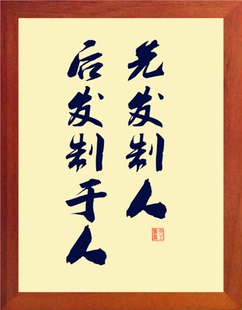 先发制人
后发制于人